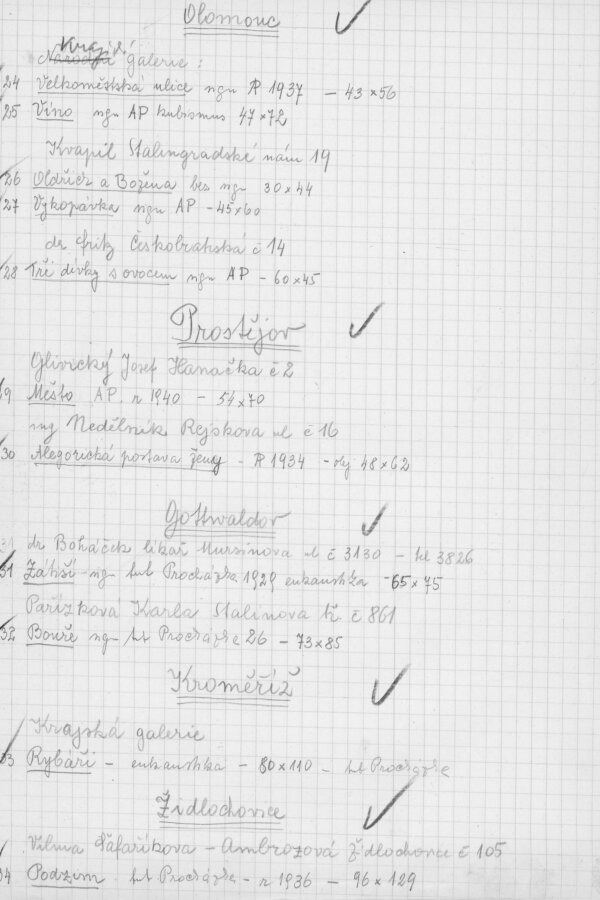 Olomouc
Krajs. galerie:
24 Velkoměstská ulice sgn R 1937 - 43×56
25 Víno sgn AP kubismus 47×72
Kvapil Stalingradské nám 19
26 Oldřich a Božena bez sgn 30×44
27 Vykopávka sgn AP - 45×60
dr fritz Českobratrská č 14
28 Tři dívky s ovocem sgn AP - 60×45
Prostějov
Glivický Josef Hanačka č 2
9 Město AP. r 1940 - 54×70
ing Nedělník Rejskova ul č 16
30 Alegorická postava ženy - R 1934 - olej 48×62
Gottwaldov
dr Boháček lékař Mursinova ul č 3130 - tel 3826
31 Zátiší - sgn Procházka 1929 enkaustika - 65×75
Pařízková Karla Stalinova tř. č 861
32 Bouře sgn Procházka 26 - 73×85
Kroměříž
Krajská galerie
33 Rybáři - enkaustika - 80×110 - Procházka
Židlochovice
Vilma Šafaříkova - Ambrozová Židlochovice č 105
34 Podzim Procházka - r 1936 - 96×129